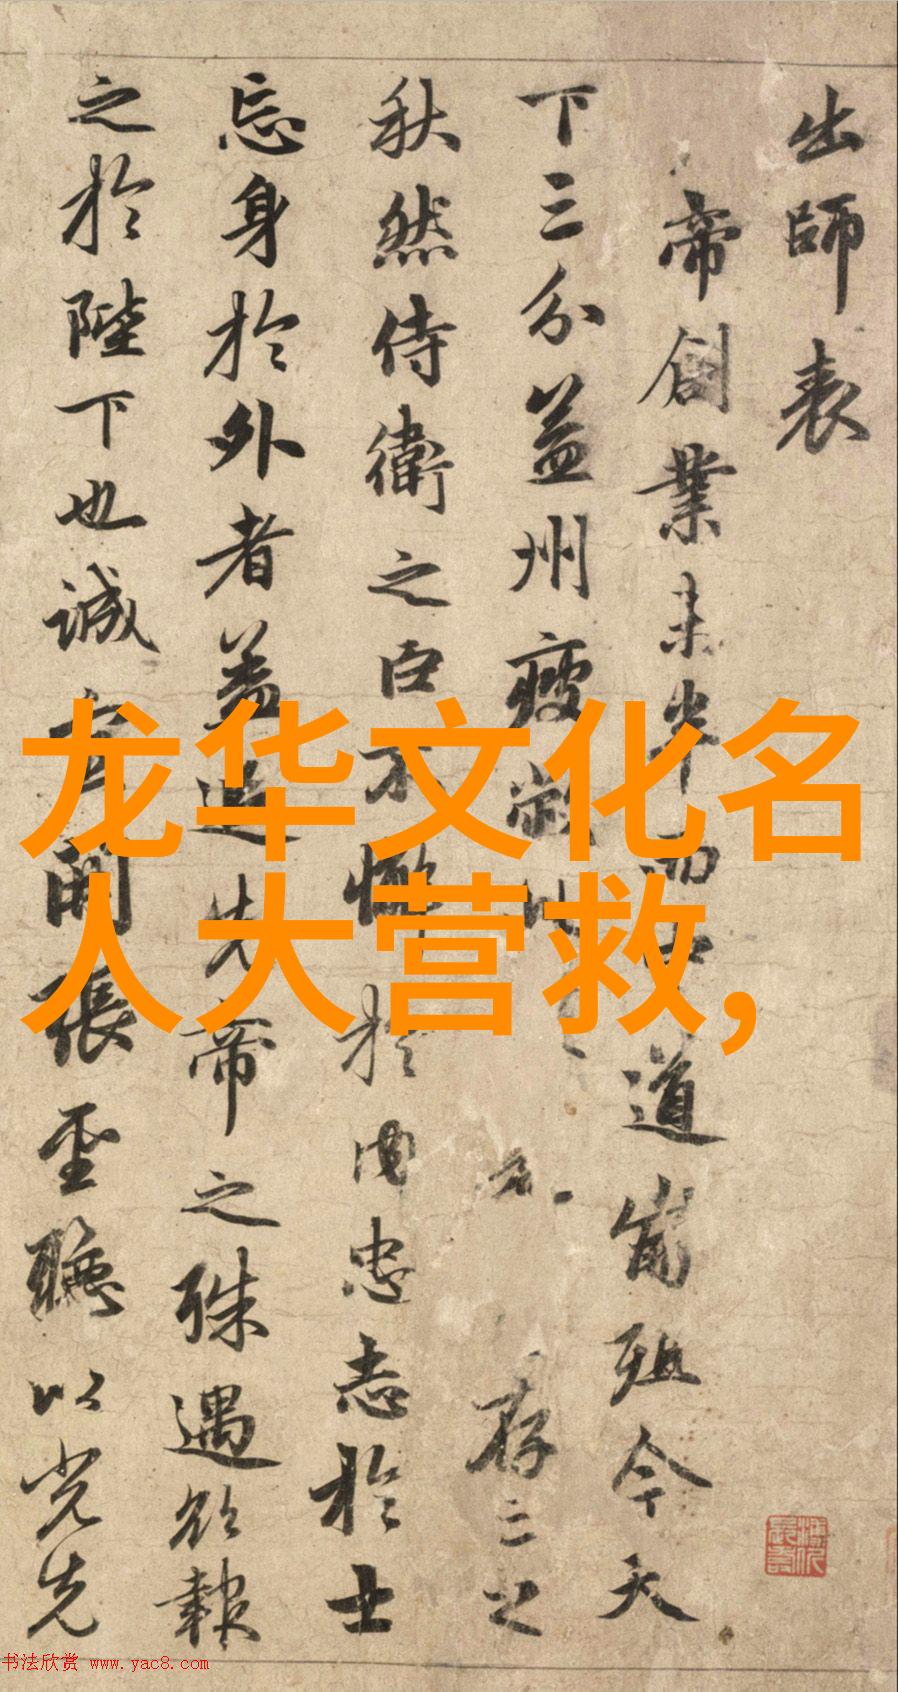 出師表
帝創業未半而中道崩殂今天
下三分益州疲敝此存亡之
秋然侍衛之臣不懈於内忠志於士
忘身於外者蓋追先帝之殊遇欲報
之於陛下也誠宜開張聖聽以光先
龙华文化名
人大营救,
书法欣赏 www.yac8.com